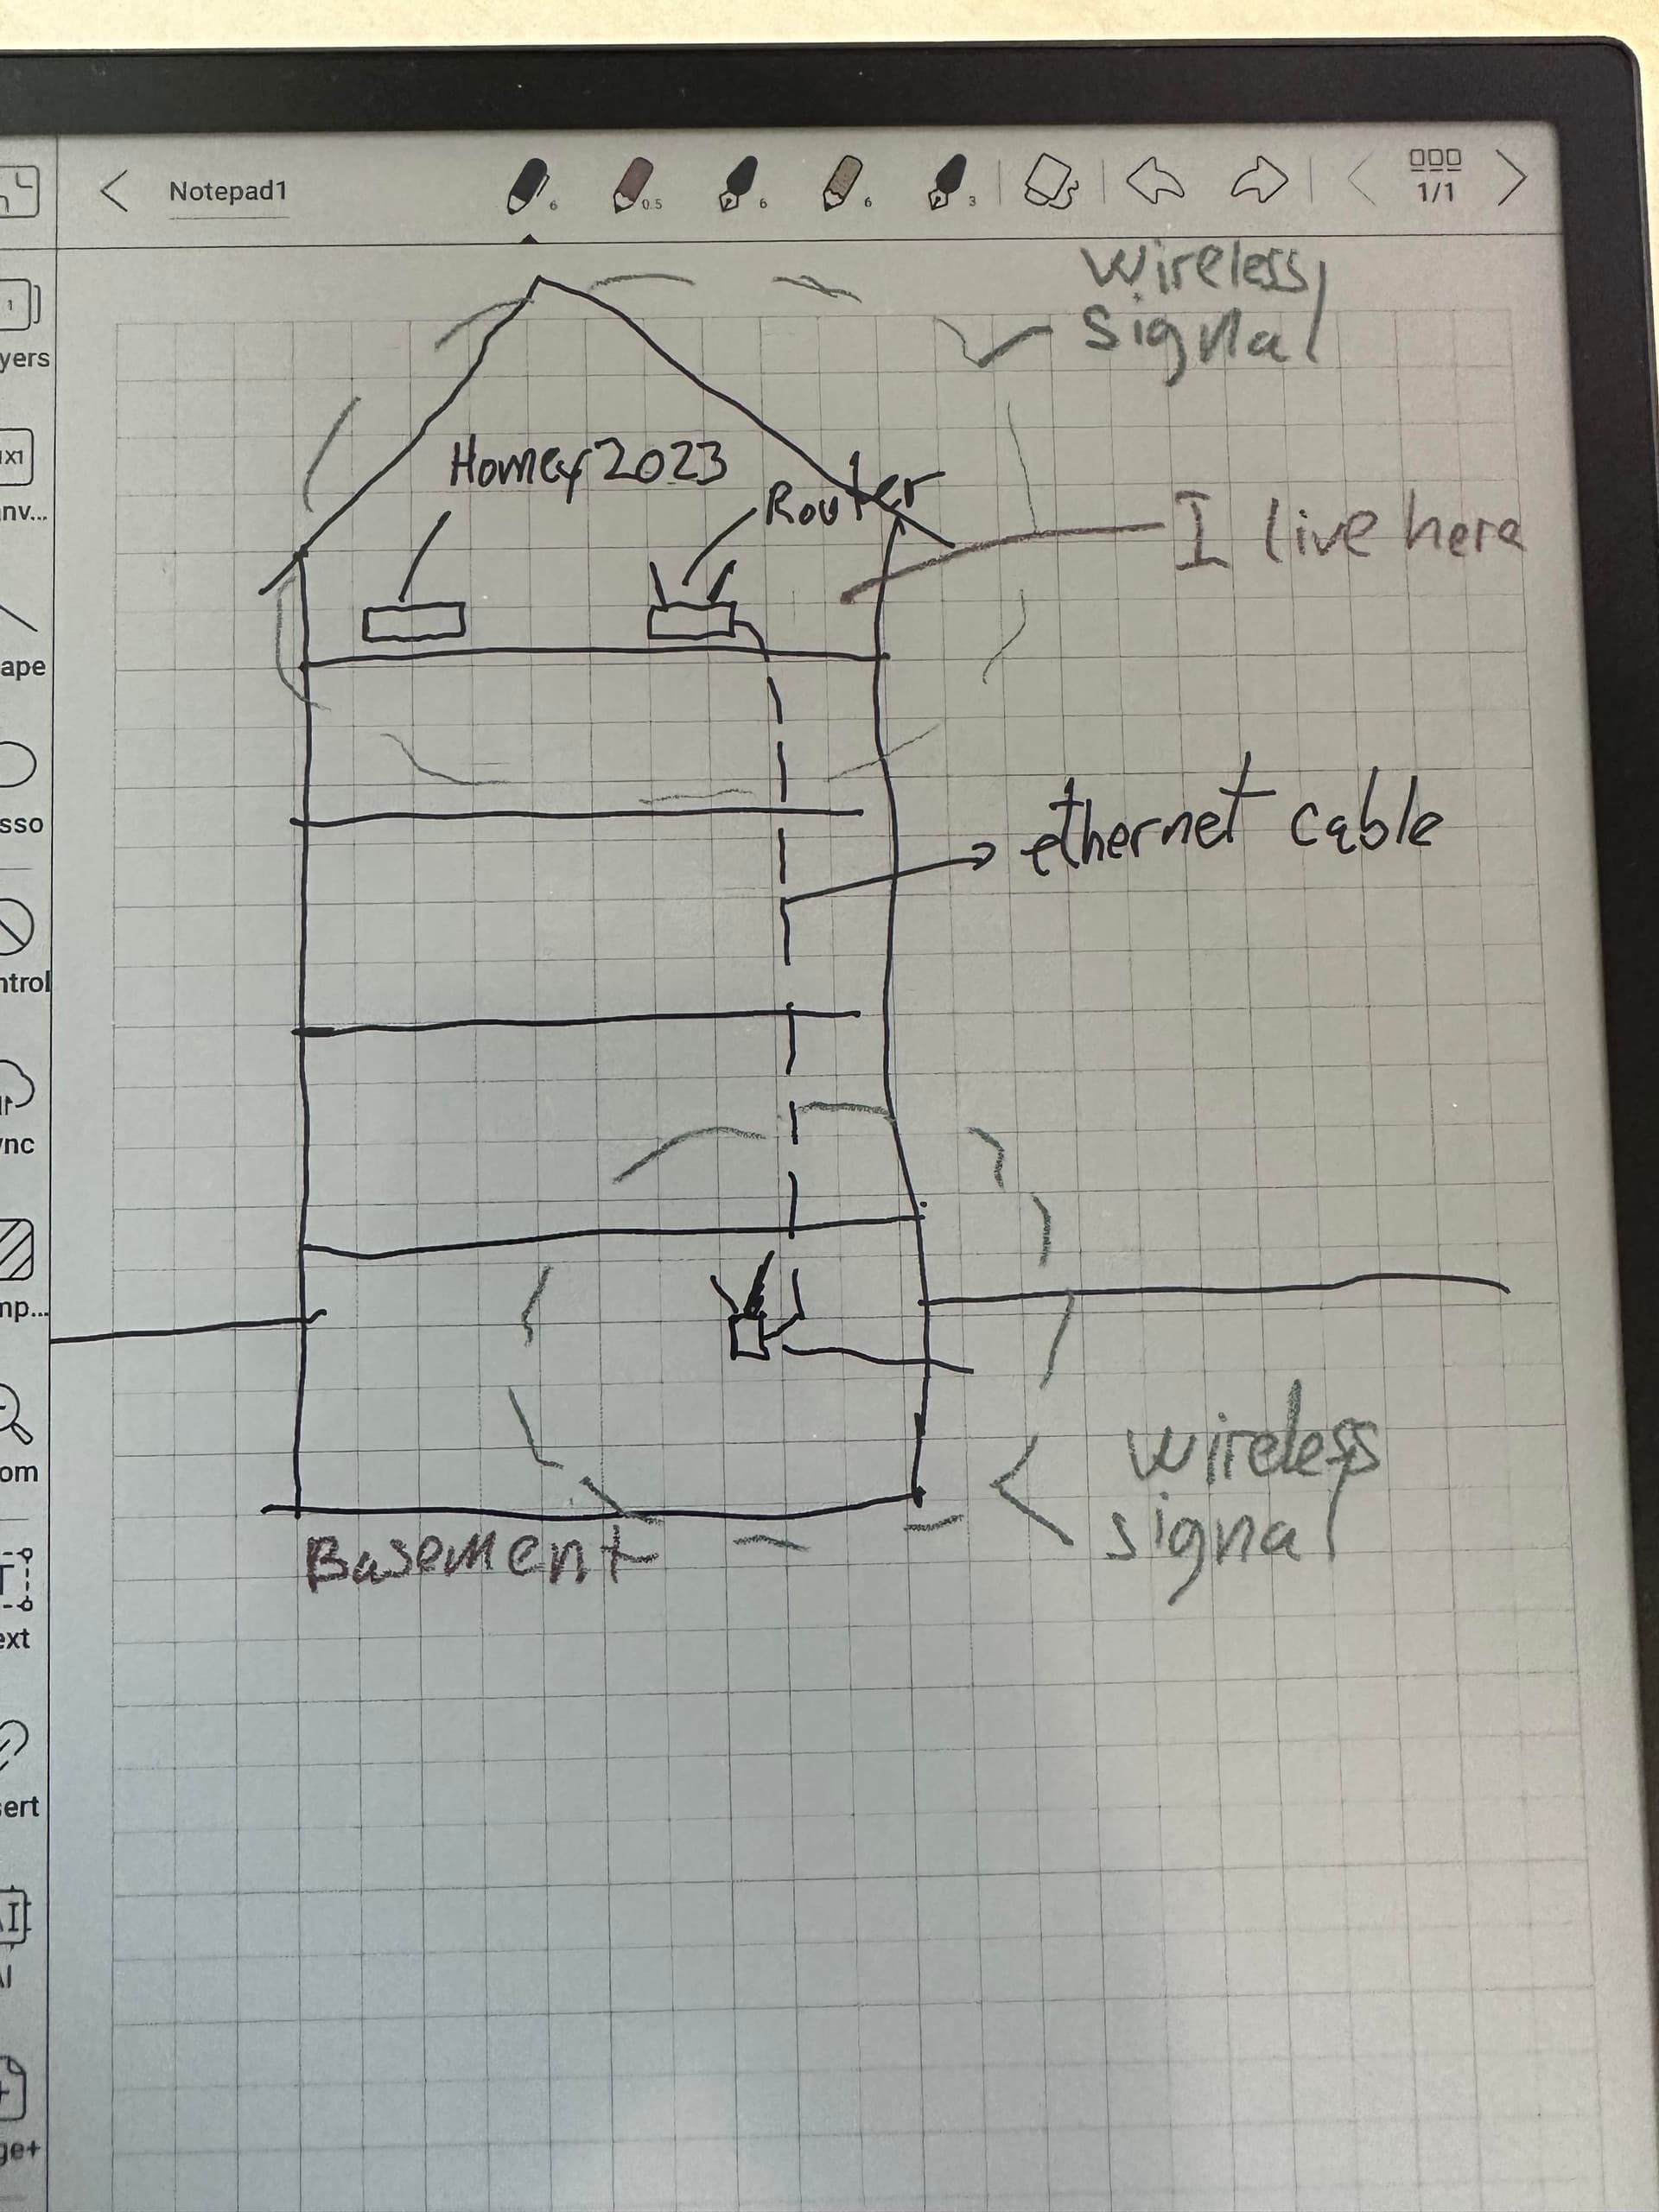 Notepad1
6
0.5
6
6
3
1/1
1
yers
1X1
anv...
ape
sso
ntrol
ync
mp...
om
ext
sert
AI
ge+
Wireless
Signal
Homey 2023
Router
I live here
ethernet cable
Wireless
signal
Basement